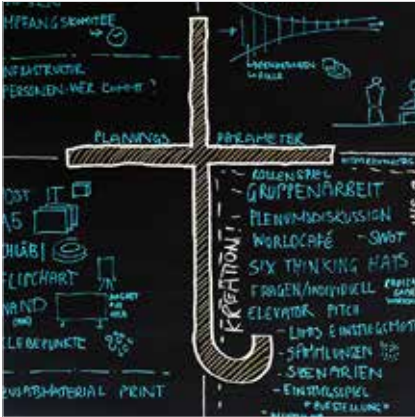 MPFANGSKOMITEE
NFRASTRUCTUR
PERSONEN-WER KOMMT?
PLANUNGS PARAMETER
OST IT
A5
FLIPCHART
WAND
KLEBEPUNKTE
ZUSATZMATERIAL PRINT
KREATION!
ROLLENSPIEL
GRUPPENARBEIT
PLENUMSDISKUSSION
WORLDCAFÉ - SWOT
SIX THINKING HATS
FRAGEN/INDIVIDUELL
ELEVATOR PITCH
- SAMMLUNGEN
- SZENARIEN
- EINSTIEGSSPIEL
"AUFSTELLUNG"